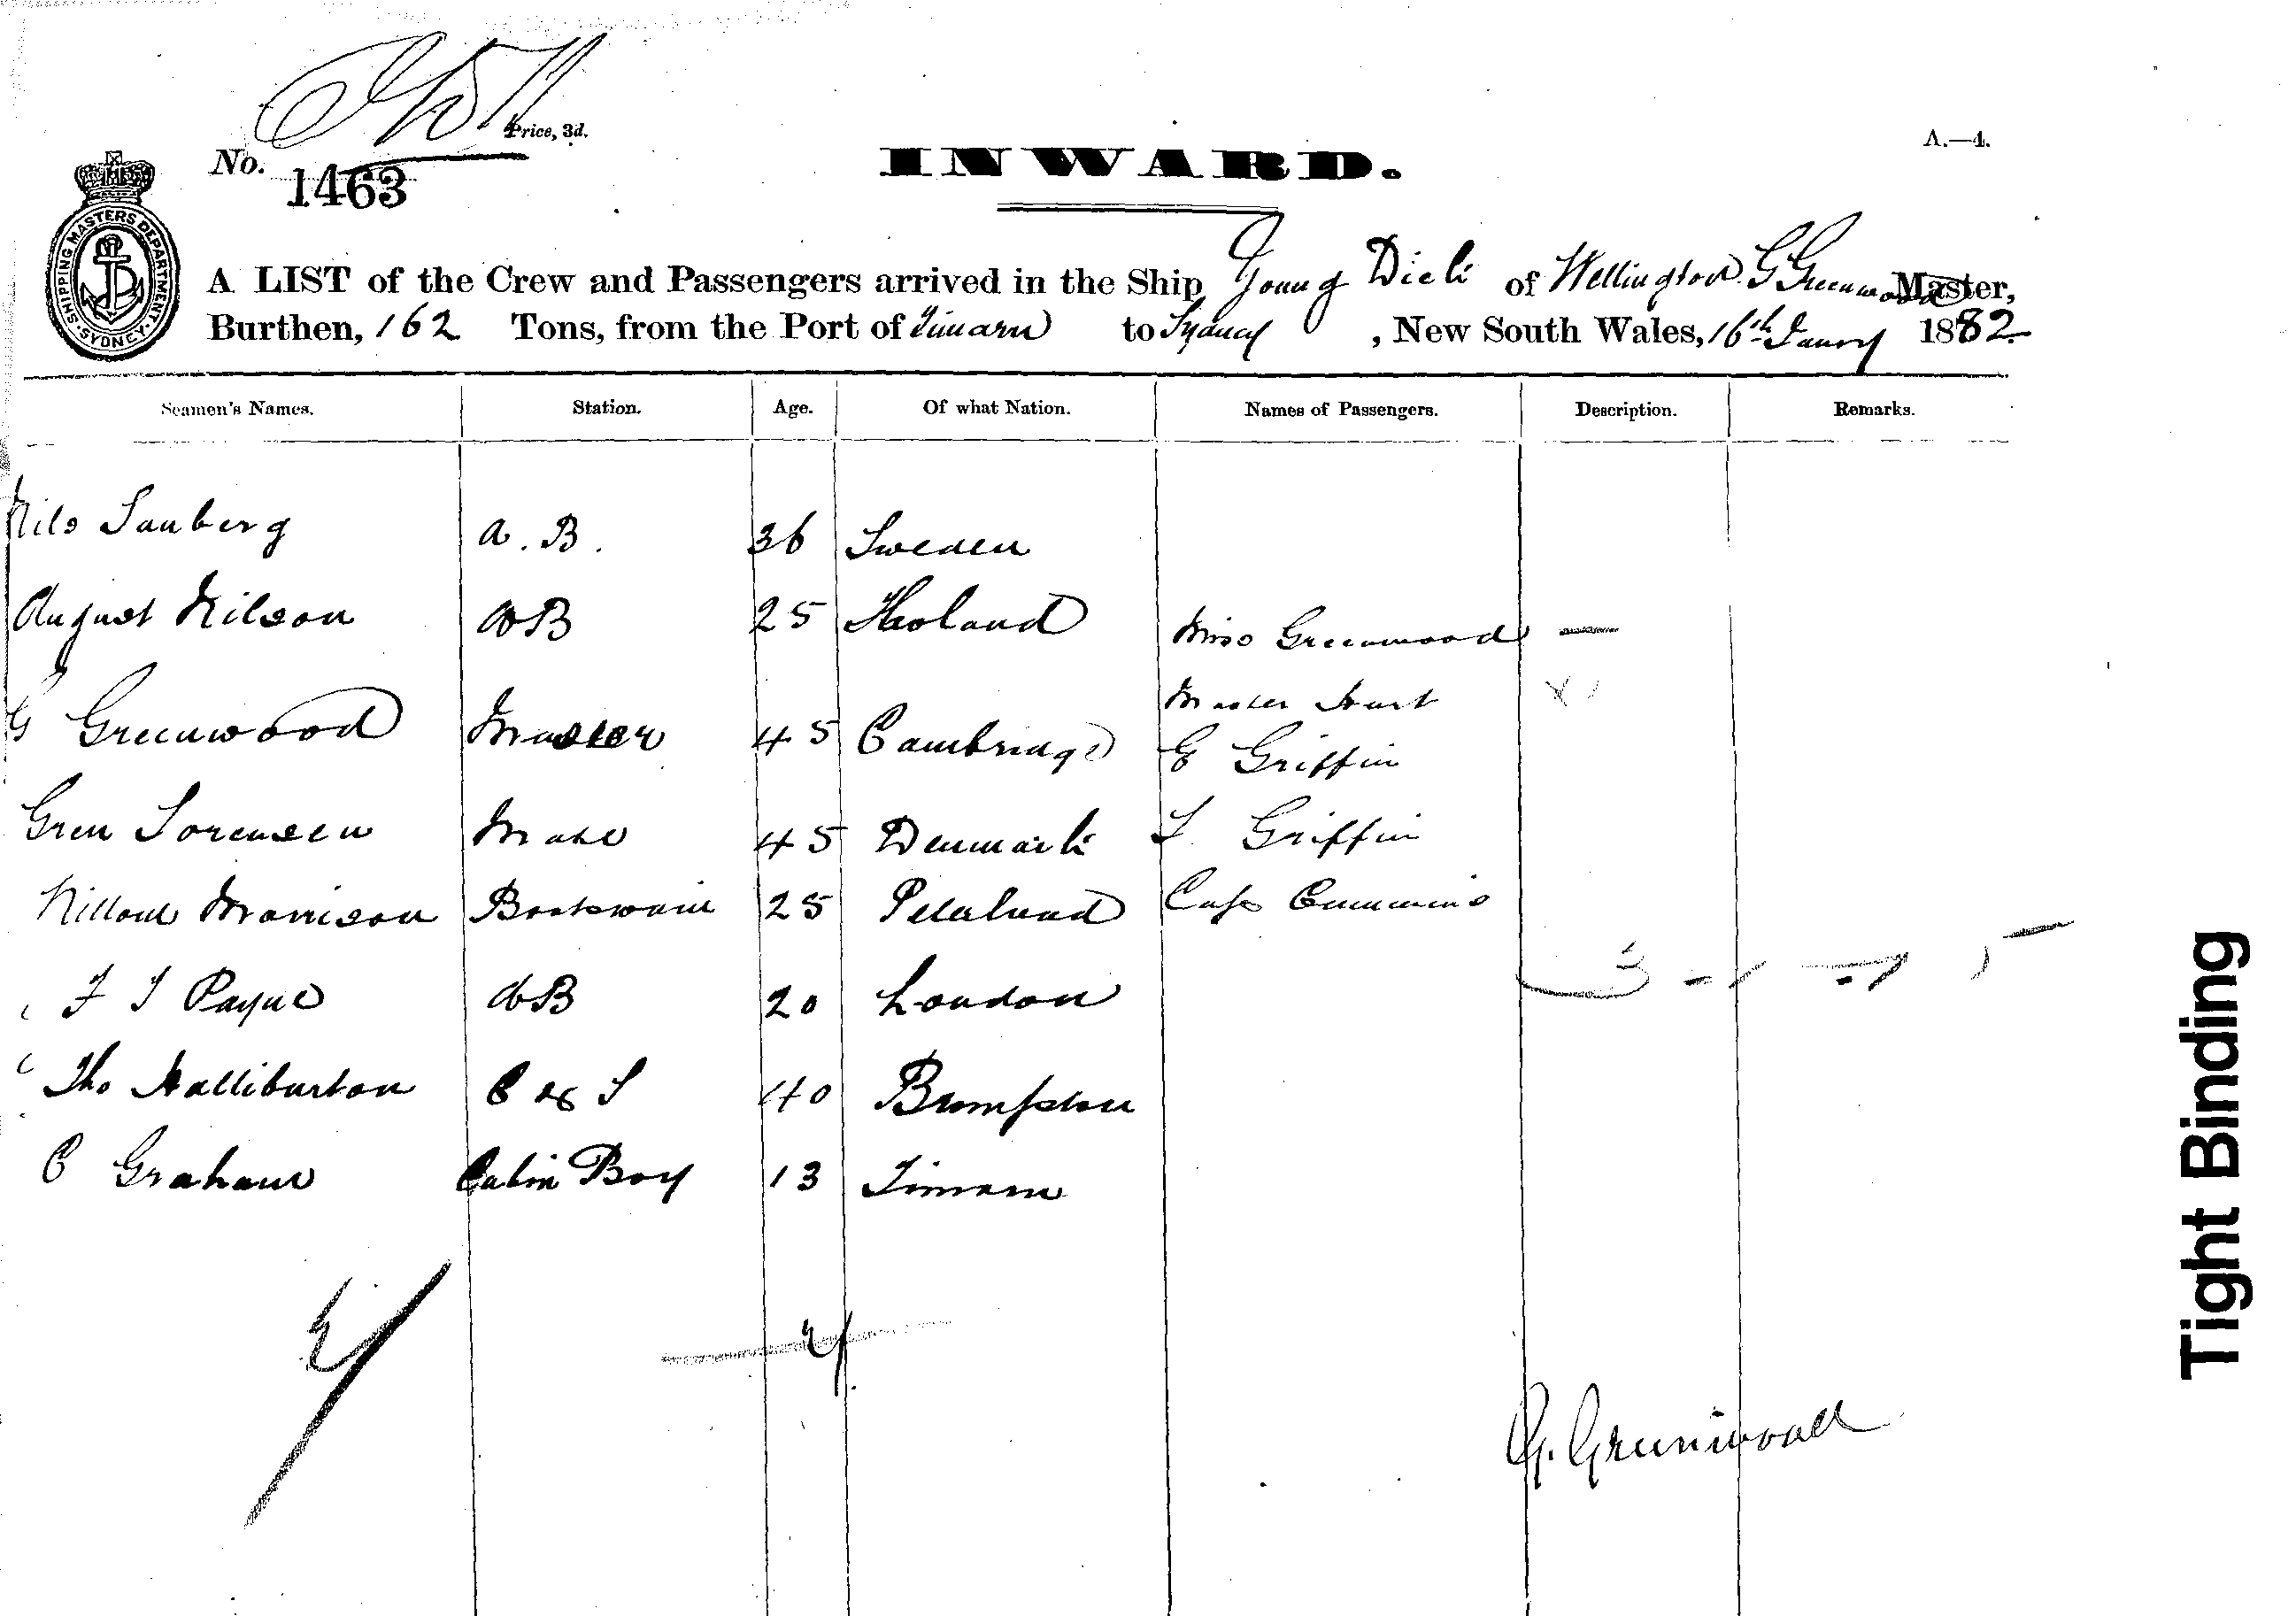 Price, 3d.
No. 1463
INWARD.
A.—4.
SHIPPING MASTERS DEPARTMENT. SYDNEY.
A LIST of the Crew and Passengers arrived in the Ship Young Dick of Wellington G Greenwood Master,
Burthen, 162 Tons, from the Port of Timaru to Sydney, New South Wales, 16th Janry 1882
Seamen's Names. Station. Age. Of what Nation. Names of Passengers. Description. Remarks.
Nils Sanberg A.B. 36 Sweden
August Nilson AB 25 Holand Miss Greenwood —
Master Hart
G Greenwood Master 45 Cambridge
E Griffin
Gren Sorensen Mate 45 Denmark L Griffin
Morrison Boatswain 25 Capt Cummins
F J Payne AB 20 London
Tho Halliburton C & S 40 Brompton
C Graham Cabin Boy 13 Timaru
G. Greenwood
Tight Binding